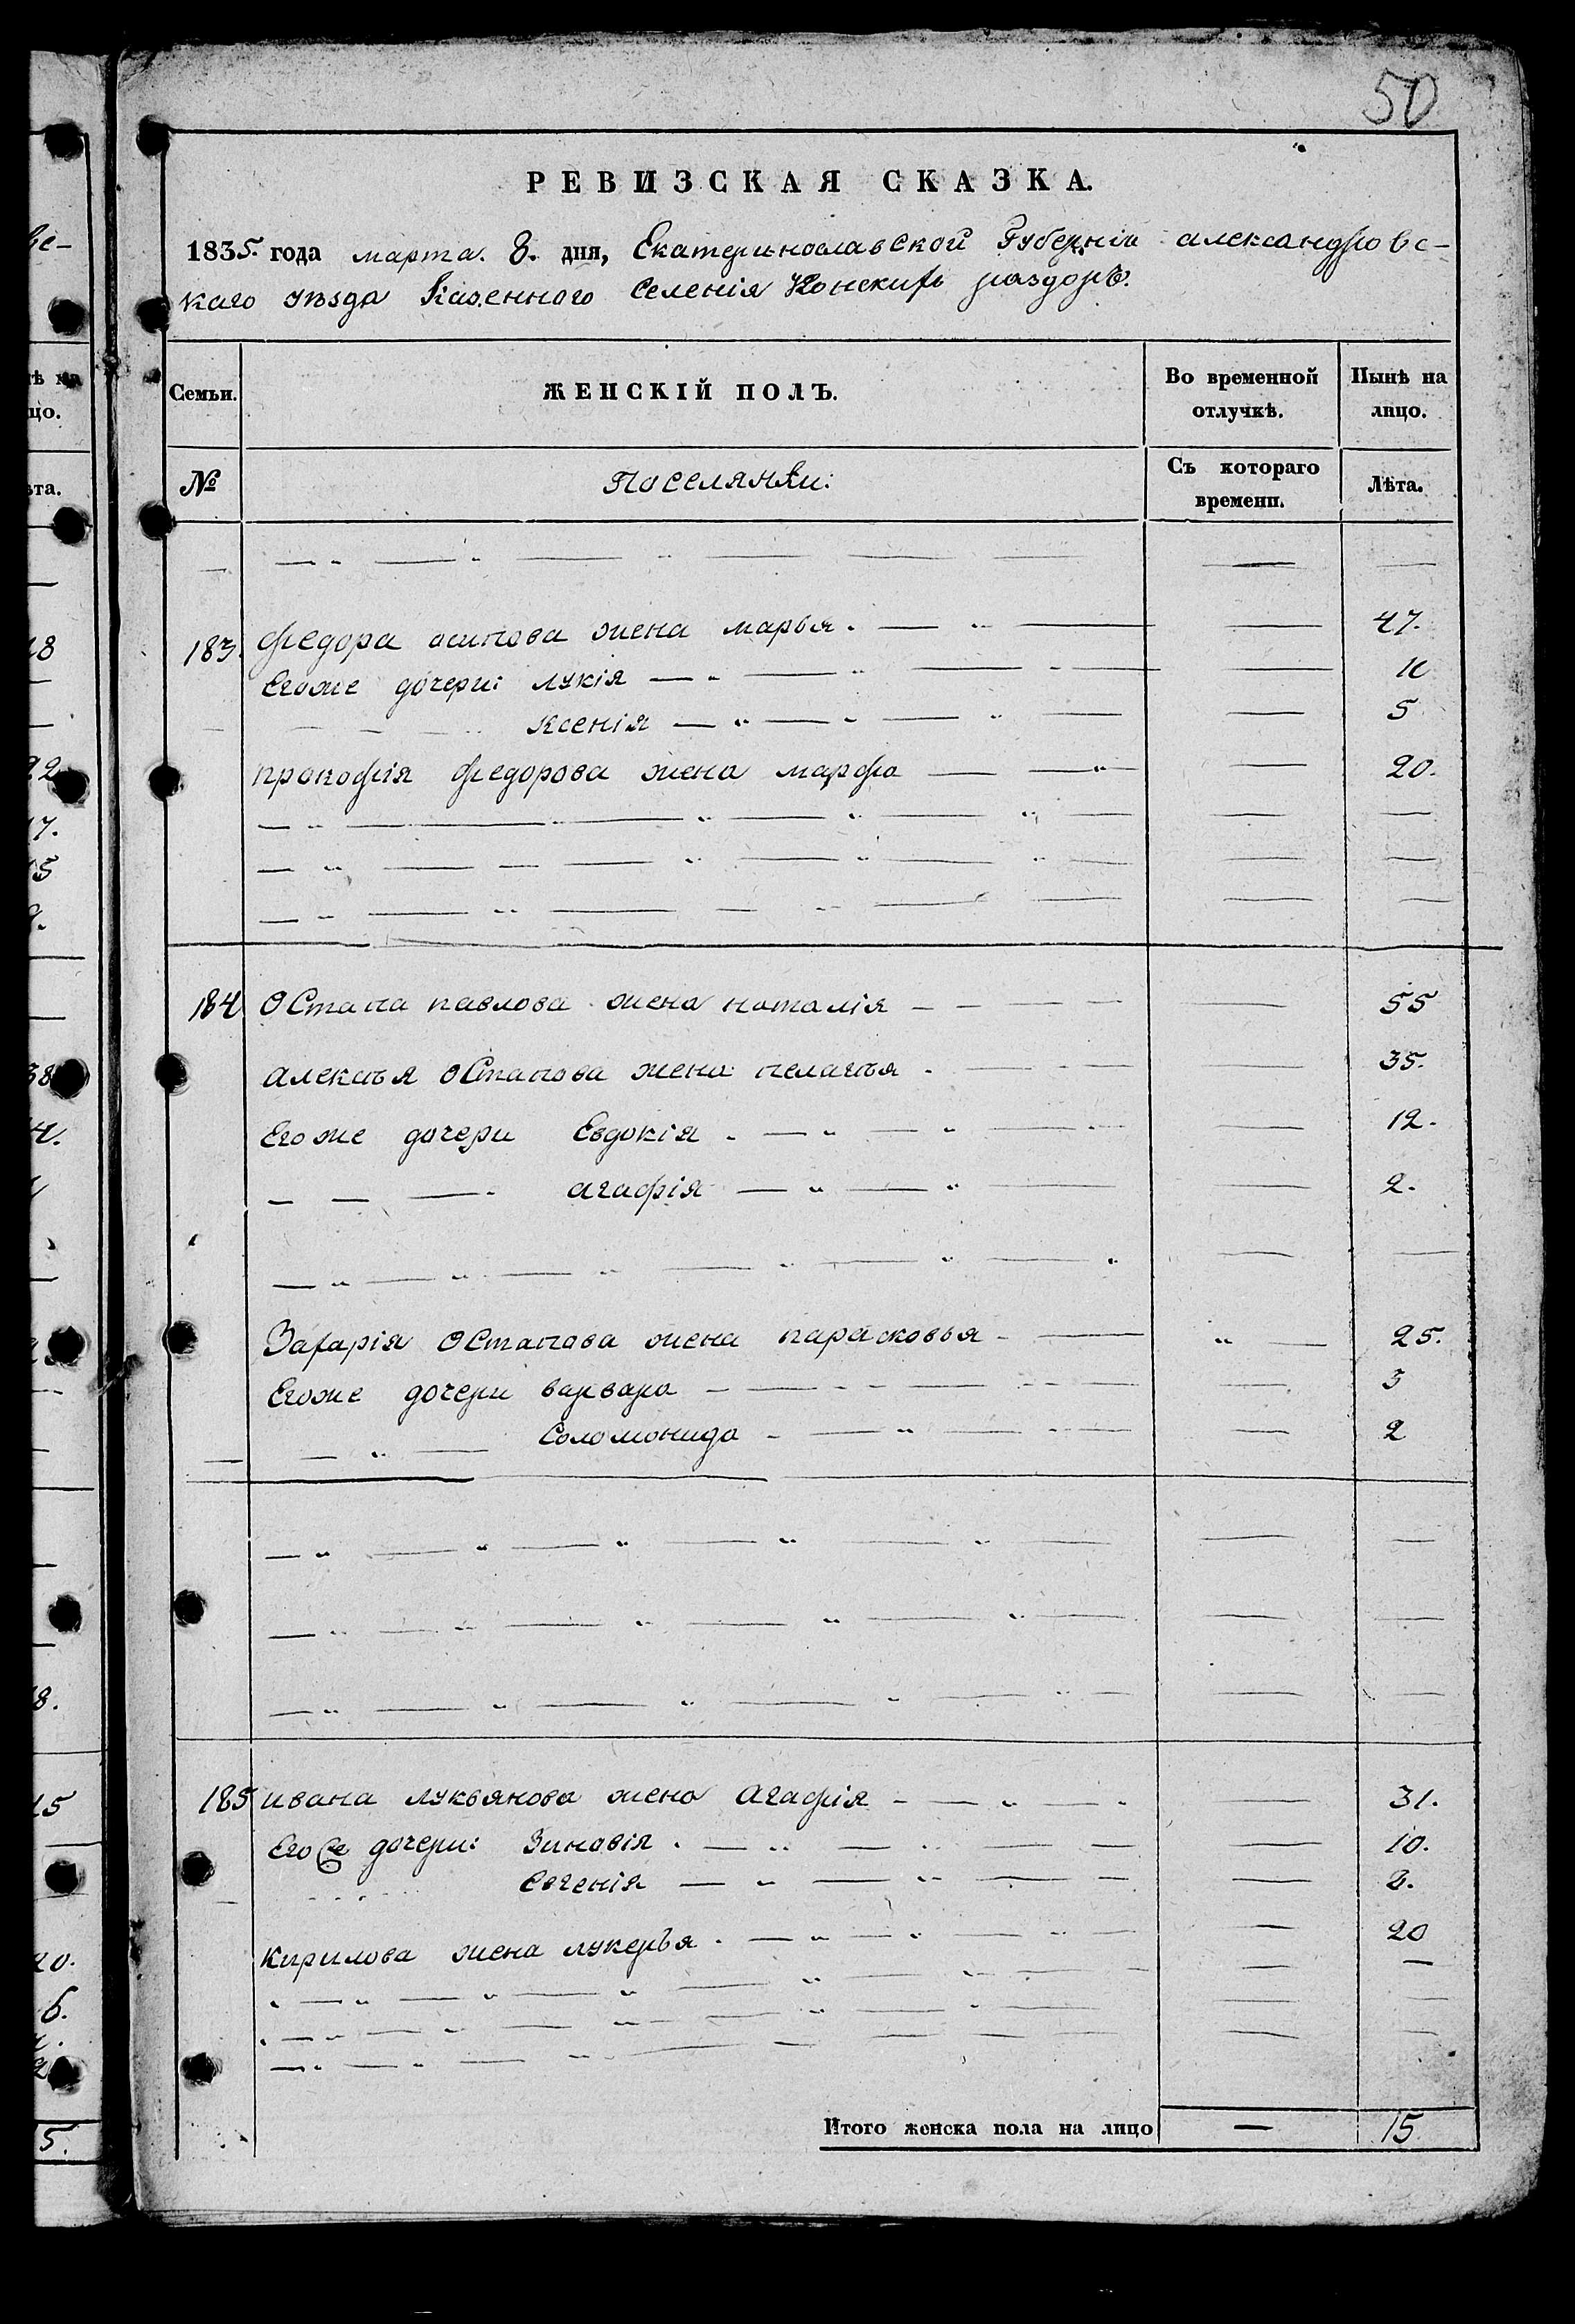 50
РЕВИЗСКАЯ СКАЗКА.
1835. года марта. 8. дня, Екатеринославской Губерніи александровс-
каго уѣзда Казенного Селенія Конскихъ раздоръ.
Семьи. ЖЕНСКІЙ ПОЛЪ. Во временной отлучкѣ. Нынѣ на лицо.
№ Поселянки: Съ котораго времени. Лѣта.
183. Федора осипова жена марья. 47.
Егоже дочери: лукія 11
Ксенія 5
прокофія федорова жена марфа 20.
184 Остапа павлова жена наталія 55
алексѣя Остапова жена пелагѣя. 35.
Егоже дочери Евдокія. 12.
агафія 2.
Захарія Остапова жена парасковья 25.
Егоже дочери варвара 3
Соломонида 2
185 ивана лукьянова жена Агафія 31.
Его дочери: Зиновія. 10.
Евгенія 2.
Кирилова жена лукерья. 20
Итого женска пола на лицо — 15
ве-
ѣ на
цо.
ѣта.
18
22
17.
15
38
4.
18.
15
20.
6.
5.